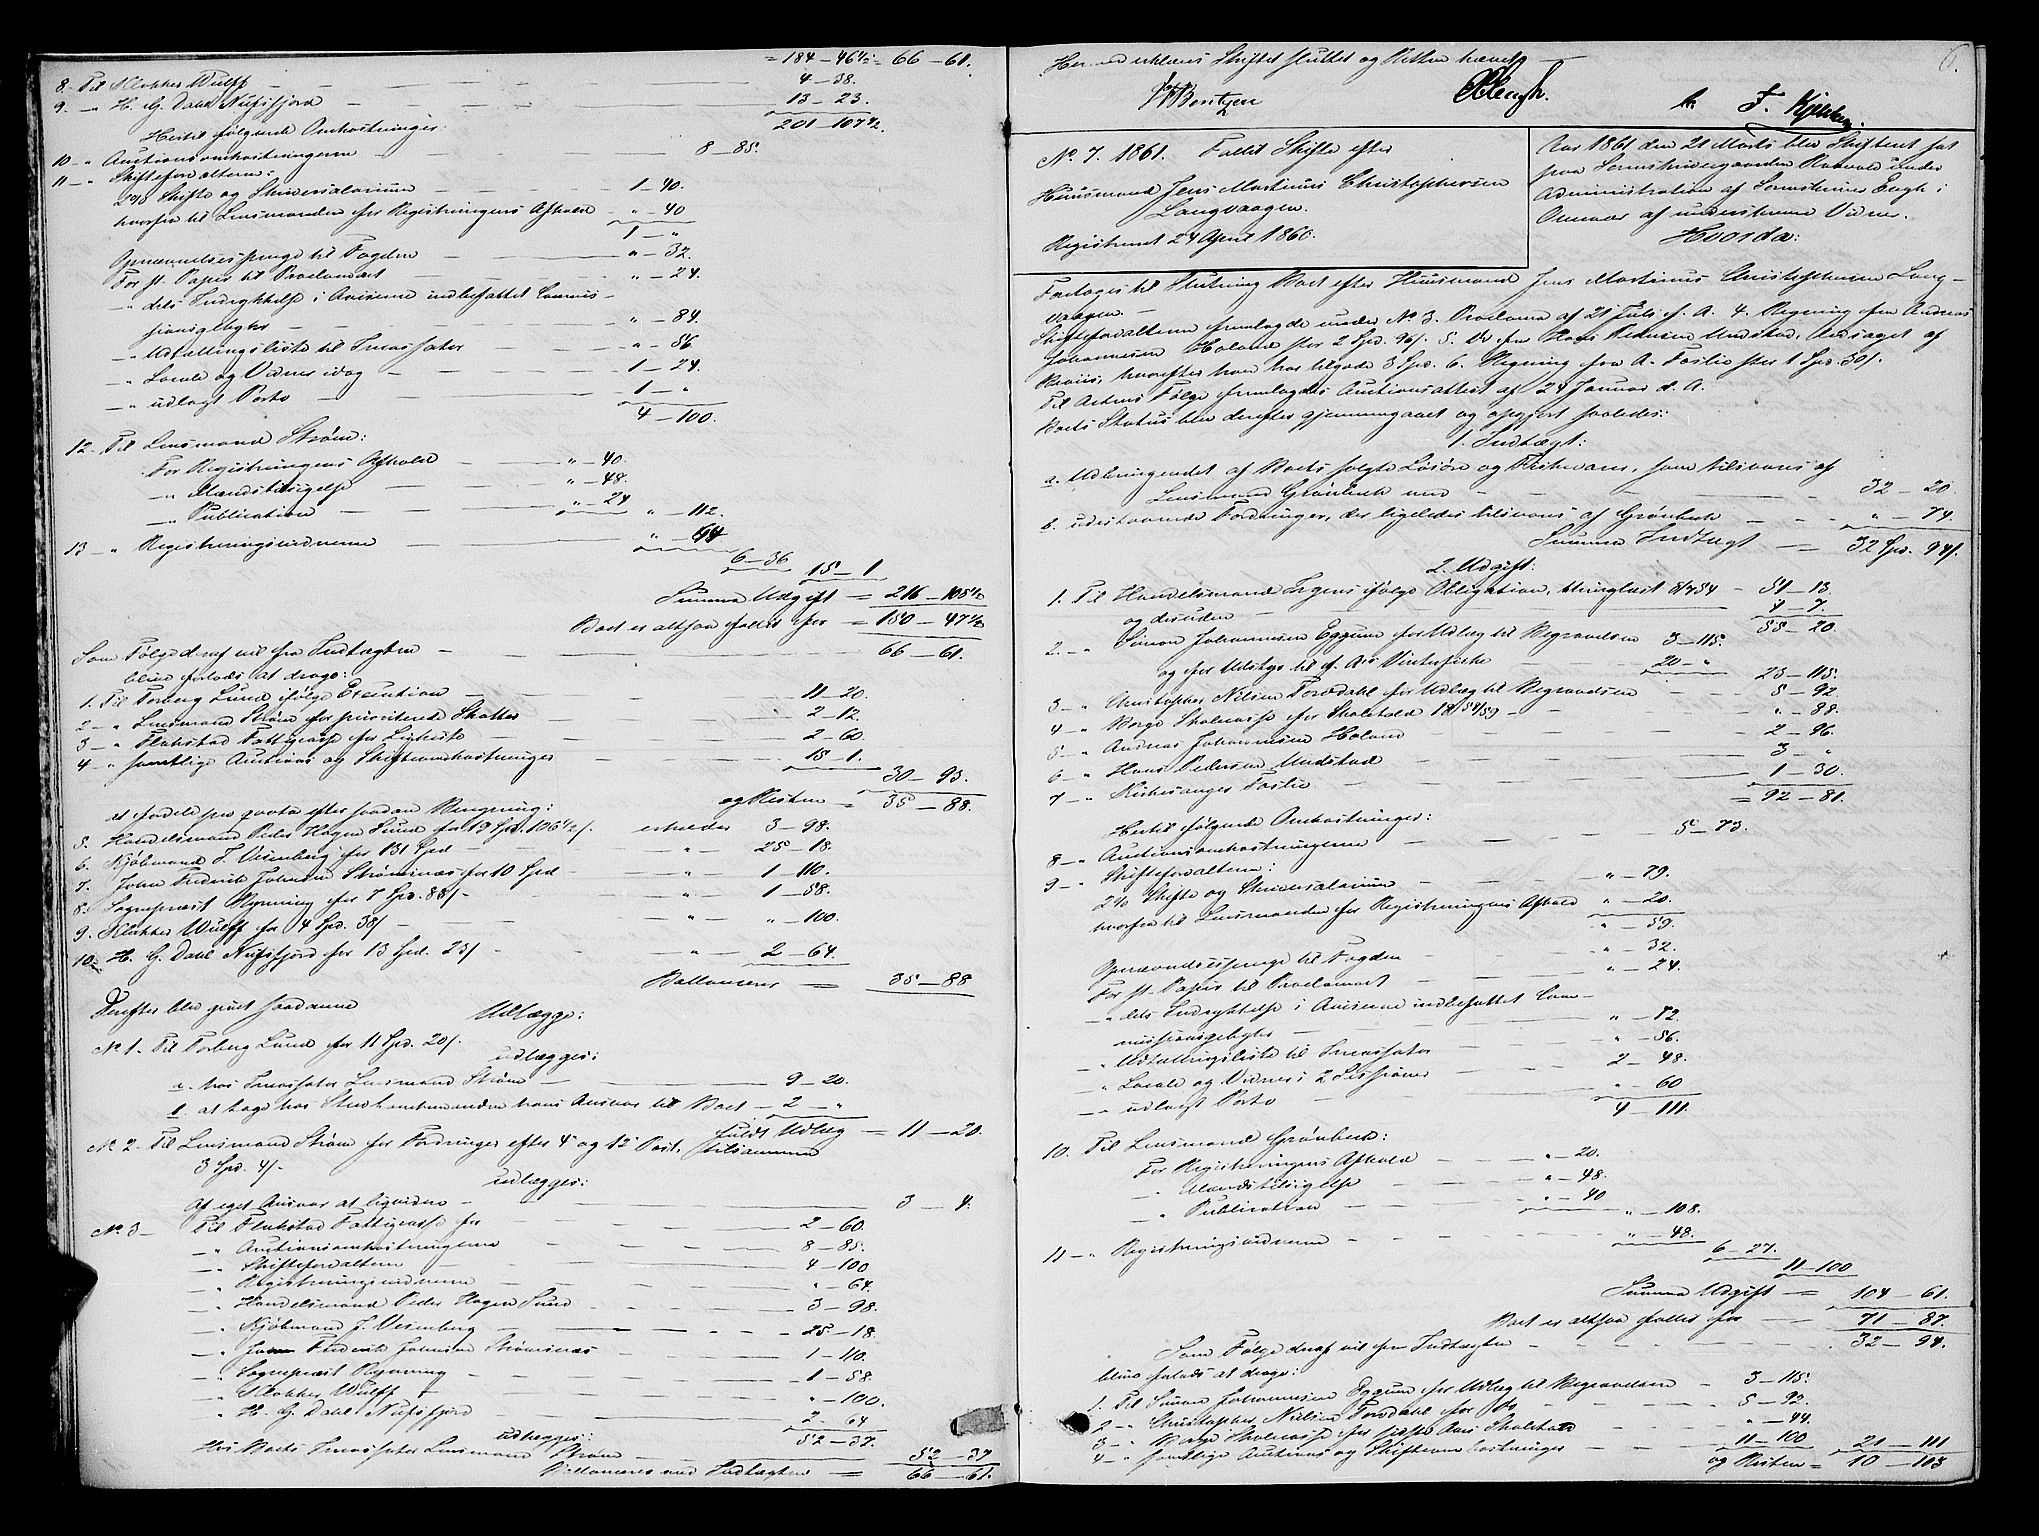 = 184 - 46½ = 66 - 61.
8. Til Klokker Wulff - 4 - 38.
9. " H. G. Dahl Nufsfjord - 13 - 23.
201 - 107½
Hertil følgende Omkostninger:
10 - " Auctionsomkostningerne - 8 - 85.
11 - " Skifteforvalteren:
2% Skifte og Skriversalarium - 1 - 40.
hvorfra til Lensmanden for Registreringens Afhold - " - 40
1 - "
Opnævnelsespenge til Fogden - " - 32.
For st. Papir til Proclamaet - " - 24.
- " dets Indrykkelse i Aviserne indbefattet Commis-
sionsgebyhr - " - 84.
- " Udtællingsliste til Incassator - " - 56
- " Locale og Vidner idag - 1 - 24.
- " udlagt Porto - 1 - "
4 - 100.
12. Til Lensmand Strøm:
For Registreringens Afhold - " - 40.
- " Mændstilsigelse - " - 48.
- " Publication - " - 24
" - 112.
13 - " Registreringsvidnerne - " - 64
6 - 36
15 - 1
Summa Udgift = 216 - 108½
Boet er altsaa fallit for = 150 - 47½
Som Følge deraf vil fra Indtægten - 66 - 61.
blive forlods at drage:
1. Til Torberg Lund ifølge Execution - 11 - 20.
2 - " Lensmand Strøm for prioriterede Skatter - 2 - 12.
3 - " Flakstad Fattigcasse for Ligkiste - 2 - 60.
4 - " samtlige Auctions og Skifteomkostninger - 15 - 1.
30 - 93.
og Resten = 35 - 88.
at fordele pro qvota efter saadan Beregning:
5. Handelsmand Peder Hagen Sund for 19 Spd. 106½ /- erholder 3 - 98.
6. Kjøbmand J. Vesenberg for 131 Spd - " - 25 - 18.
7. John Fredrik Johnsen Strømsnæs for 10 Spd - " - 1 - 110.
8. Sognepræst Rynning for 7 Spd. 88/- " - 1 - 58.
9. Klokker Wulff for 4 Spd. 38/ - " - " - 100.
10. H. G. Dahl Nufsfjord for 13 Spd. 23/ - " - 2 - 64.
Ballancerer = 35 - 88
Derefter blev gjort saadanne
Udlægge:
No. 1. Til Torberg Lund for 11 Spd. 20/.
udlægges:
a. hos Incassator Lensmand Strøm - 9 - 20.
b. at tage hos Enken mod hans Ansvar til Boet - 2 - "
fuldt Udlæg = 11 - 20.
No. 2. Til Lensmand Strøm for Fordringer efter 4 og 12 Post, tilsammen
3 Spd. 4/-
udlægges:
Af eget Ansvar at liqvidere - 3 - 4.
No. 3 - Til Flakstad Fattigcasse for - 2 - 60.
- " Auctionsomkostningerne - 8 - 85.
- " Skifteforvalteren - 4 - 100
- " Registreringsvidnerne - " - 64.
- " Handelsmand Peder Hagen Sund - 3 - 98.
- " Kjøbmand J. Vesenberg - 25 - 18.
- " John Fredrik Johnsen Strømsnæs - 1 - 110.
- " Sognepræst Rynning - 1 - 58.
- " Klokker Wulff - " - 100.
- " H. G. Dahl Nufsfjord - 2 - 64
52 - 37.
udlægges:
Hos Boets Incassator Lensmand Strøm - 52 - 37
Ballancerer med Indtægten = 66 - 61.
6.
Hermed erklæres Skiftet sluttet og Retten hævet
Berntzen Engh. F. Kjelsberg
No. 7. 1861. Fallit Skifte efter
Huusmand Jens Martinus Christophersen
Langvaagen.
Registreret 24 April 1860.
Aar 1861 den 21 Marts blev Skifteret sat
paa Sorenskrivergaarden under
Administration af Sorenskriver Engh i
Overvær af undertegnede Vidner.
Hvorda:
Foretages til Slutning Boet efter Huusmand Jens Martinus Christophersen Lang-
vaagen.
Skifteforvalteren fremlagde under No. 3. Proclama af 21 Juli f. A. 4. Regning fra Andreas
Johannesen Holand stor 2 Spd. 96/. 5. Do for Hans Pedersen Undstad, ledsaget af
Beviis, hvorefter han har tilgode 3 Spd. 6. Regning fra A. Foslie stor 1 Spd. 30/.
Til Actens Følge fremlagdes Auctionsattest af 24 Januar d. A.
Boets Status blev derefter gjennemgaaet og opgjort saaledes:
1. Indtægt:
a. Udbringendet af Boets solgte Løsøre og Fiskevarer, som tilsvares af
Lensmand Grønbech med - 32 - 20.
b. udestaaende Fordringer, der ligeledes tilsvares af Grønbech - " - 74.
Summa Indtægt = 32 Spd. 94/.
2. Udgift:
1. Til Handelsmand Ingens ifølge Obligation, thinglæst 8/7 54 - 51 - 13.
og desuden - 4 - 7.
55 - 20.
2. - " Simon Johannesen Eggum for Udlæg til Begravelsen 3 - 115.
og for Udstyr til f. Aars Vinterfiske 20 - "
23 - 115.
3 - " Christopher Nilsen Torsdahl for Udlæg til Begravelsen - 5 - 92.
4 - " Borge Skolecasse for Skolehold 1858/59 - " - 88.
5 - " Andreas Johannesen Holand - 2 - 96.
6 - " Hans Pedersen Undstad - 3 - "
7 - " Kirkesanger Foslie - 1 - 30.
= 92 - 81.
Hertil følgende Omkostninger:
8 - " Auctionsomkostningerne - 5 - 73.
9 - " Skifteforvalteren:
2% Skifte og Skriversalarium - " - 79.
hvorfra til Lensmanden for Registreringens Afhold " - 20.
" - 59.
Opnævnelsespenge til Fogden - " - 32.
For st. Papir til Proclamaet - " - 24.
- " dets Indrykkelse i Aviserne indbefattet Com-
missionsgebyhr - " - 72.
- " Udtællingsliste til Incassator - " - 56.
- " Locale og Vidner i 2 Sessioner - 2 - 48.
- " udlagt Porto - " - 60
4 - 111.
10. Til Lensmand Grønbech:
For Registreringens Afhold - " - 20.
- " Mændstilsigelse - " - 48.
- " Publication - " - 40
" - 108.
11 - " Registreringsvidnerne - " - 48.
6 - 27.
11 - 100
Summa Udgift = 104 - 61.
Boet er altsaa fallit for - 71 - 87.
Som Følge deraf vil fra Indtægten - 32 - 94.
blive forlods at drage:
1. Til Simon Johannesen Eggum for Udlæg til Begravelsen - 3 - 115.
2 - " Christopher Nilsen Torsdahl for Do - 5 - 92.
3 - " Borge Skolecasse for sidste Aars Skolehold - " - 44.
4 - " samtlige Auctions og Skifteomkostninger - 11 - 100
21 - 111
og Resten = 10 - 103